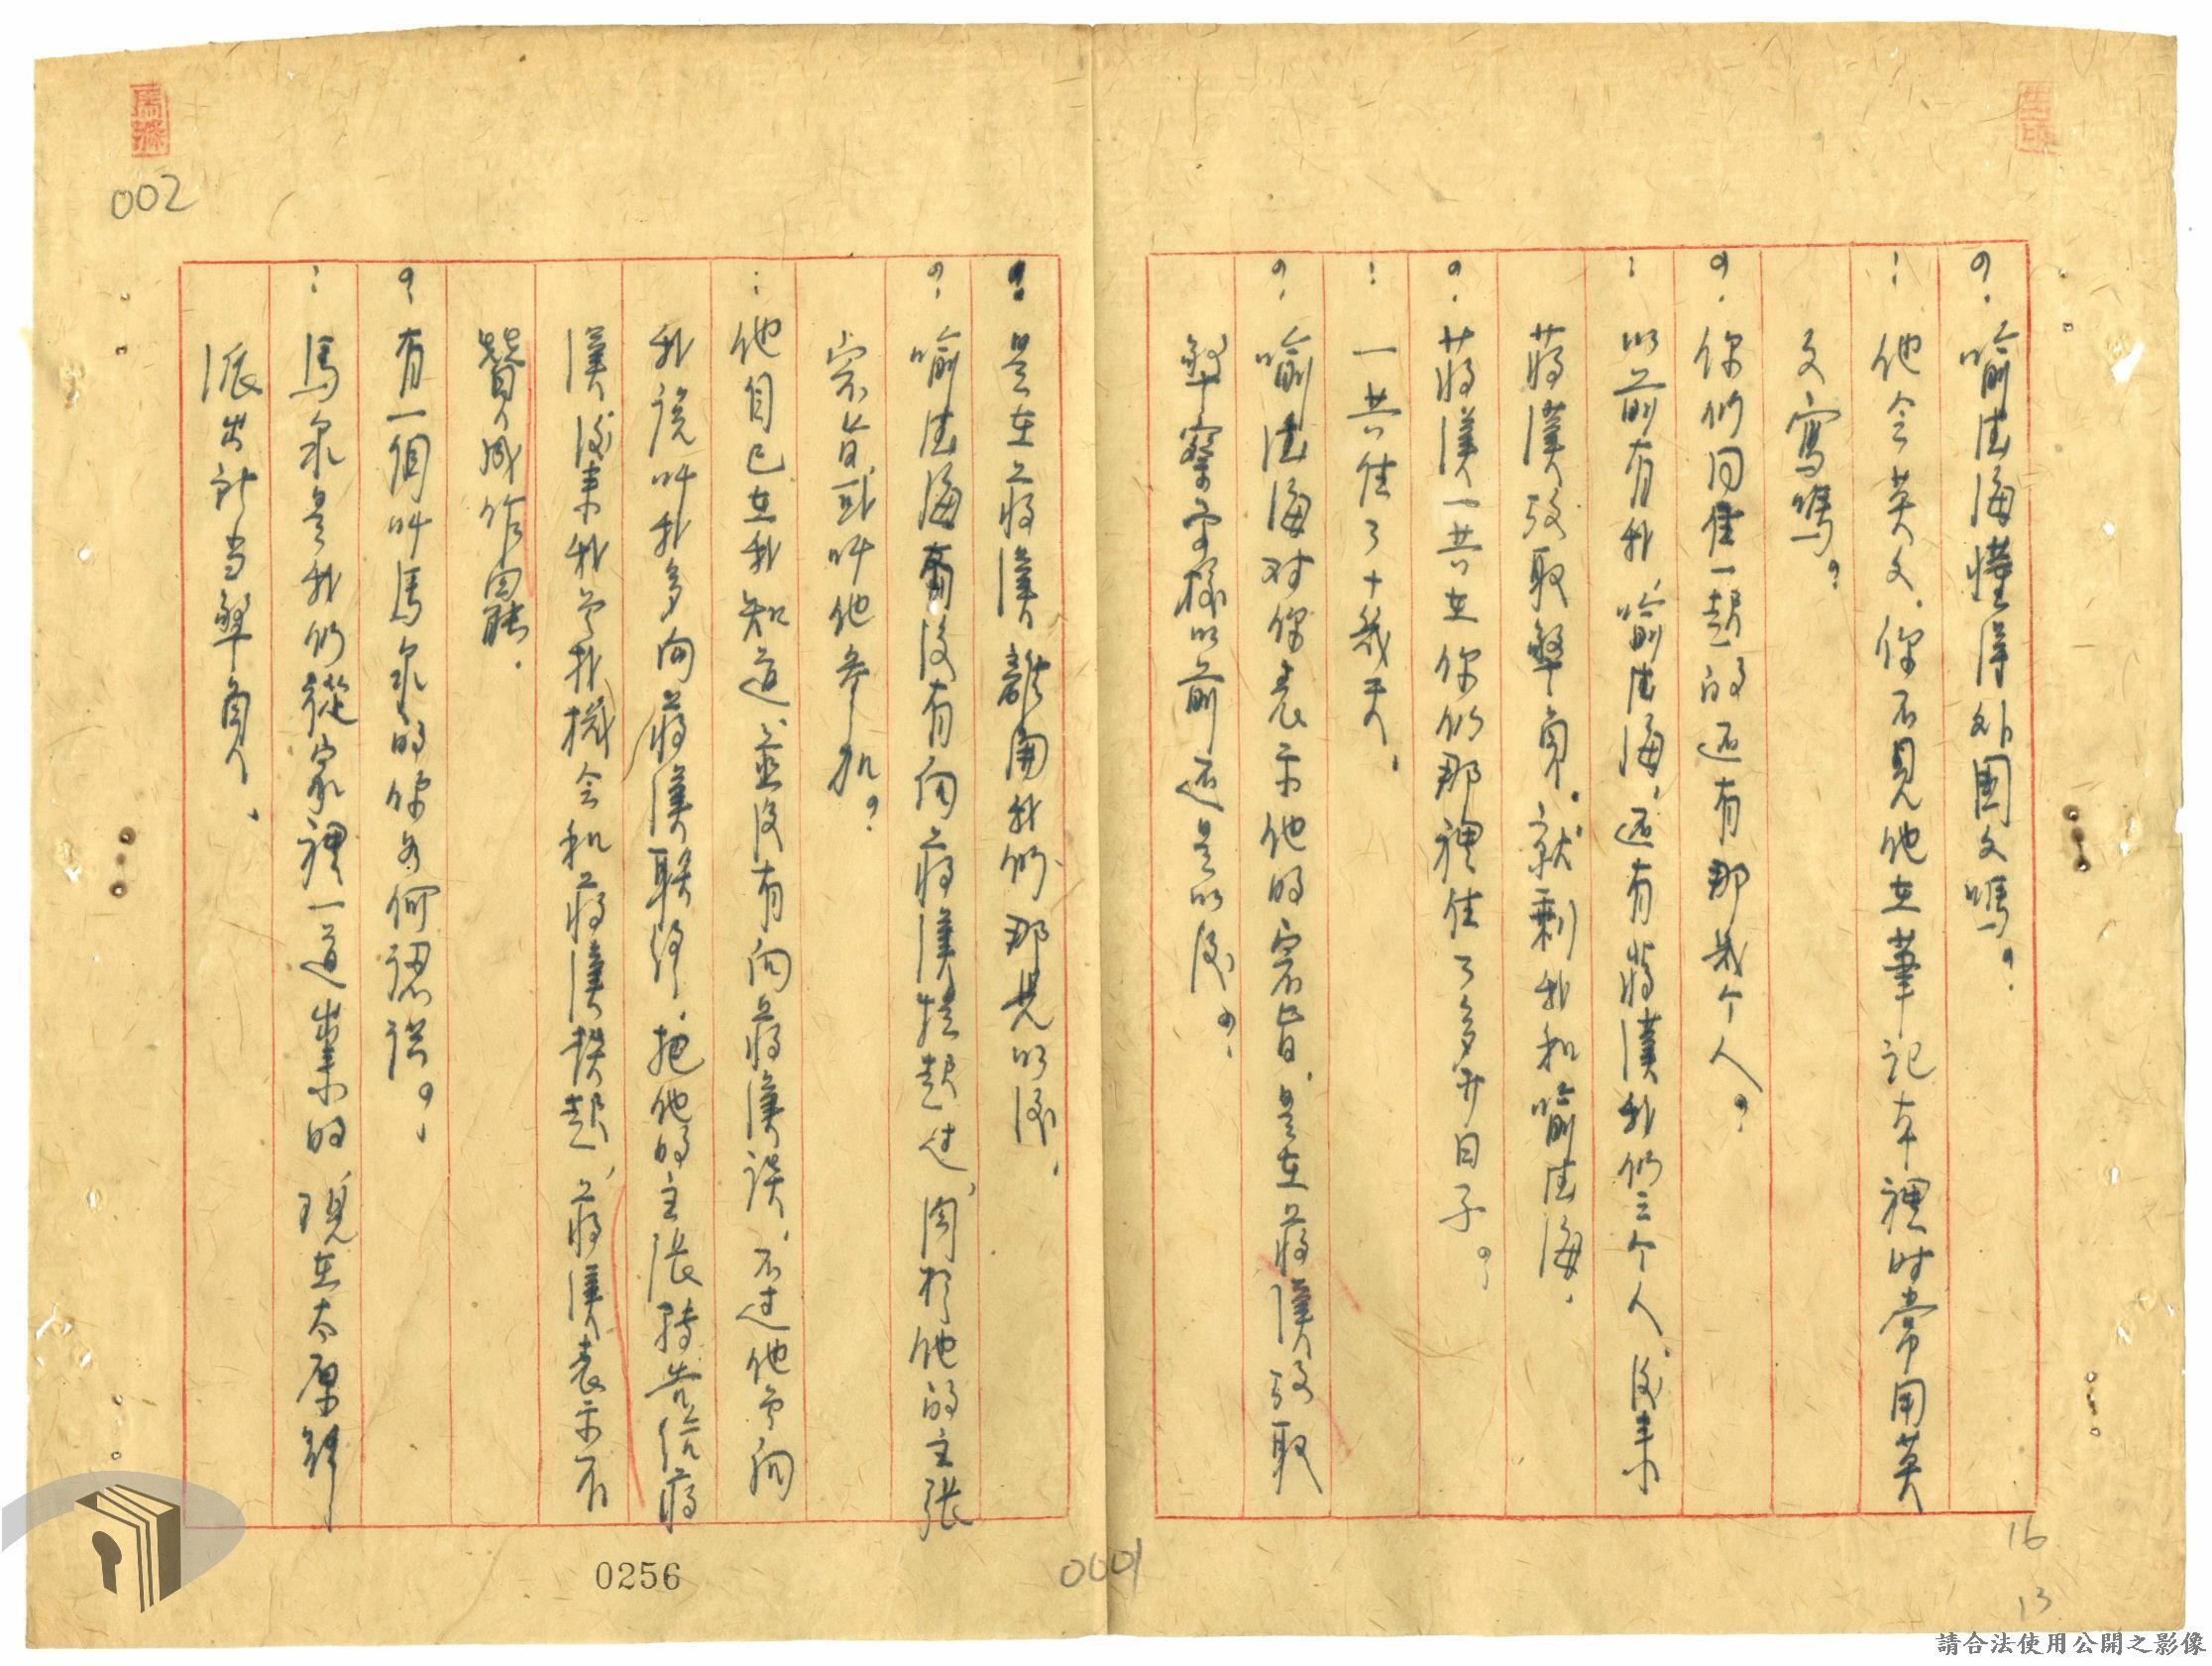 ？喻法海懂得外國文嗎？
：他会英文，你不見他在筆記本裡时常用英
文寫嗎？
？你們同住一起的还有那幾个人？
：以前有我，喻法海，还有蔣漢我們三个人，後来
蔣漢攷取警員，就剩我和喻法海，
？蔣漢一共在你們那裡住了多少日子？
：一共住了十幾天，
？喻法海对你表示他的宗旨，是在蔣漢攷取
警察学校以前还是以後？
：是在蔣漢離開我們那兒以後，
？喻法海有沒有向蔣漢提起过，関於他的主張
宗旨，或叫他参加？
：他自己在我知道，並沒有向蔣漢談，不过他曾向
我說叫我多向蔣漢聯絡，把他的主張轉告給蔣
漢後来我曾找機会和蔣漢談起，蔣漢表示不
贊成作回聴，
？有一個叫馬泉的你如何認識？
：馬泉是我們從家裡一道出来的現在太原路
派出所当警員，
002
0256
0001
16
13
請合法使用公開之影像